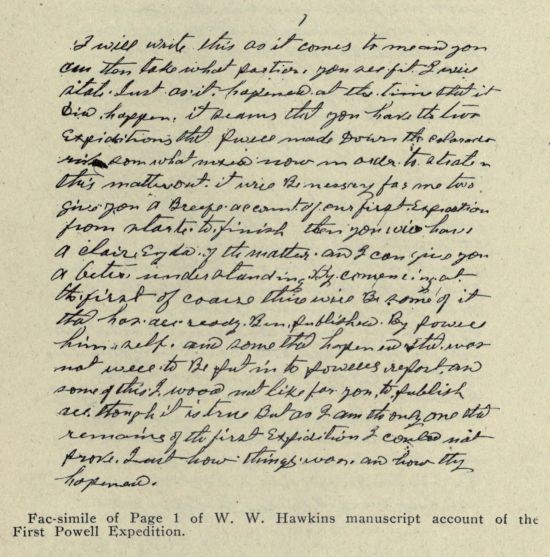 1
I will write this as it comes to me and you
can then take what portion. you see fit. I will
state. Just as it. hapened. at the time that it
Did. happen. it seams that you have the two
Expiditions that Powell made Down the colorado
river som what mixed now in order. to straten
this matter out. it will Be nessery for me two
give you a Breefe account of our first Expedition
from start. to. finish then you will have
a clair. Eyda. of the matter. and I can give you
a beter. understanding. By comencing at
the first of coarse there will Be some of it
that has. all ready. Ben. published. By Powell
him. self. and some that hopened that was
not well to Be put in to Powells report. and
some of this. I wood not like for you. to publish
all. though it is true But as I am the only one that
remains of the first Expidition I could not
prove. Just how things was. and how they
hapened.
Fac-simile of Page 1 of W. W. Hawkins manuscript account of the
First Powell Expedition.